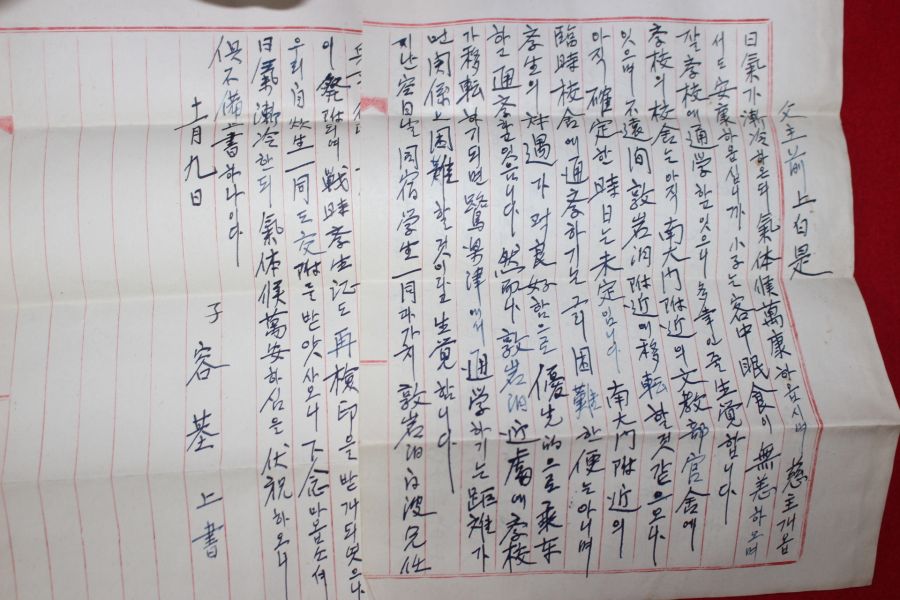 父主前上白是
日氣가漸冷하온듸氣体候萬康하옵시며 慈主개옵
서도安康하옵심니가 小子는客中眠食이無恙하오며
잘孝校에通学하고잇으니多幸인줄生覚합니다
孝校의校舍는아직南大門附近의文教部官舍에
잇으며不遠間敦岩洞附近에移転할것같으오나
아직確定한時日는未定임니다 南大門附近의
臨時校舍에通孝하기는그리困難한便는아니며
孝生의対遇가対良好함으로優先的으로乘车
하고通孝하고있음니다 然而나敦岩洞近處에孝校
가移転하기되면鷺梁津에서通学하기는距離가
먼関係上困難할것이라고生覚합니다
지난空日날同宿学生一同과가치敦岩洞白波兄任
이發附되며戦時孝生证도再検印을받게되엿으나
우리自炊生一同도交附을받앗사오니下念마옵소서
日氣漸冷한듸氣体候萬安하심을伏祝하오니
俱不備書하나이다
十一月九日
子 容基 上書